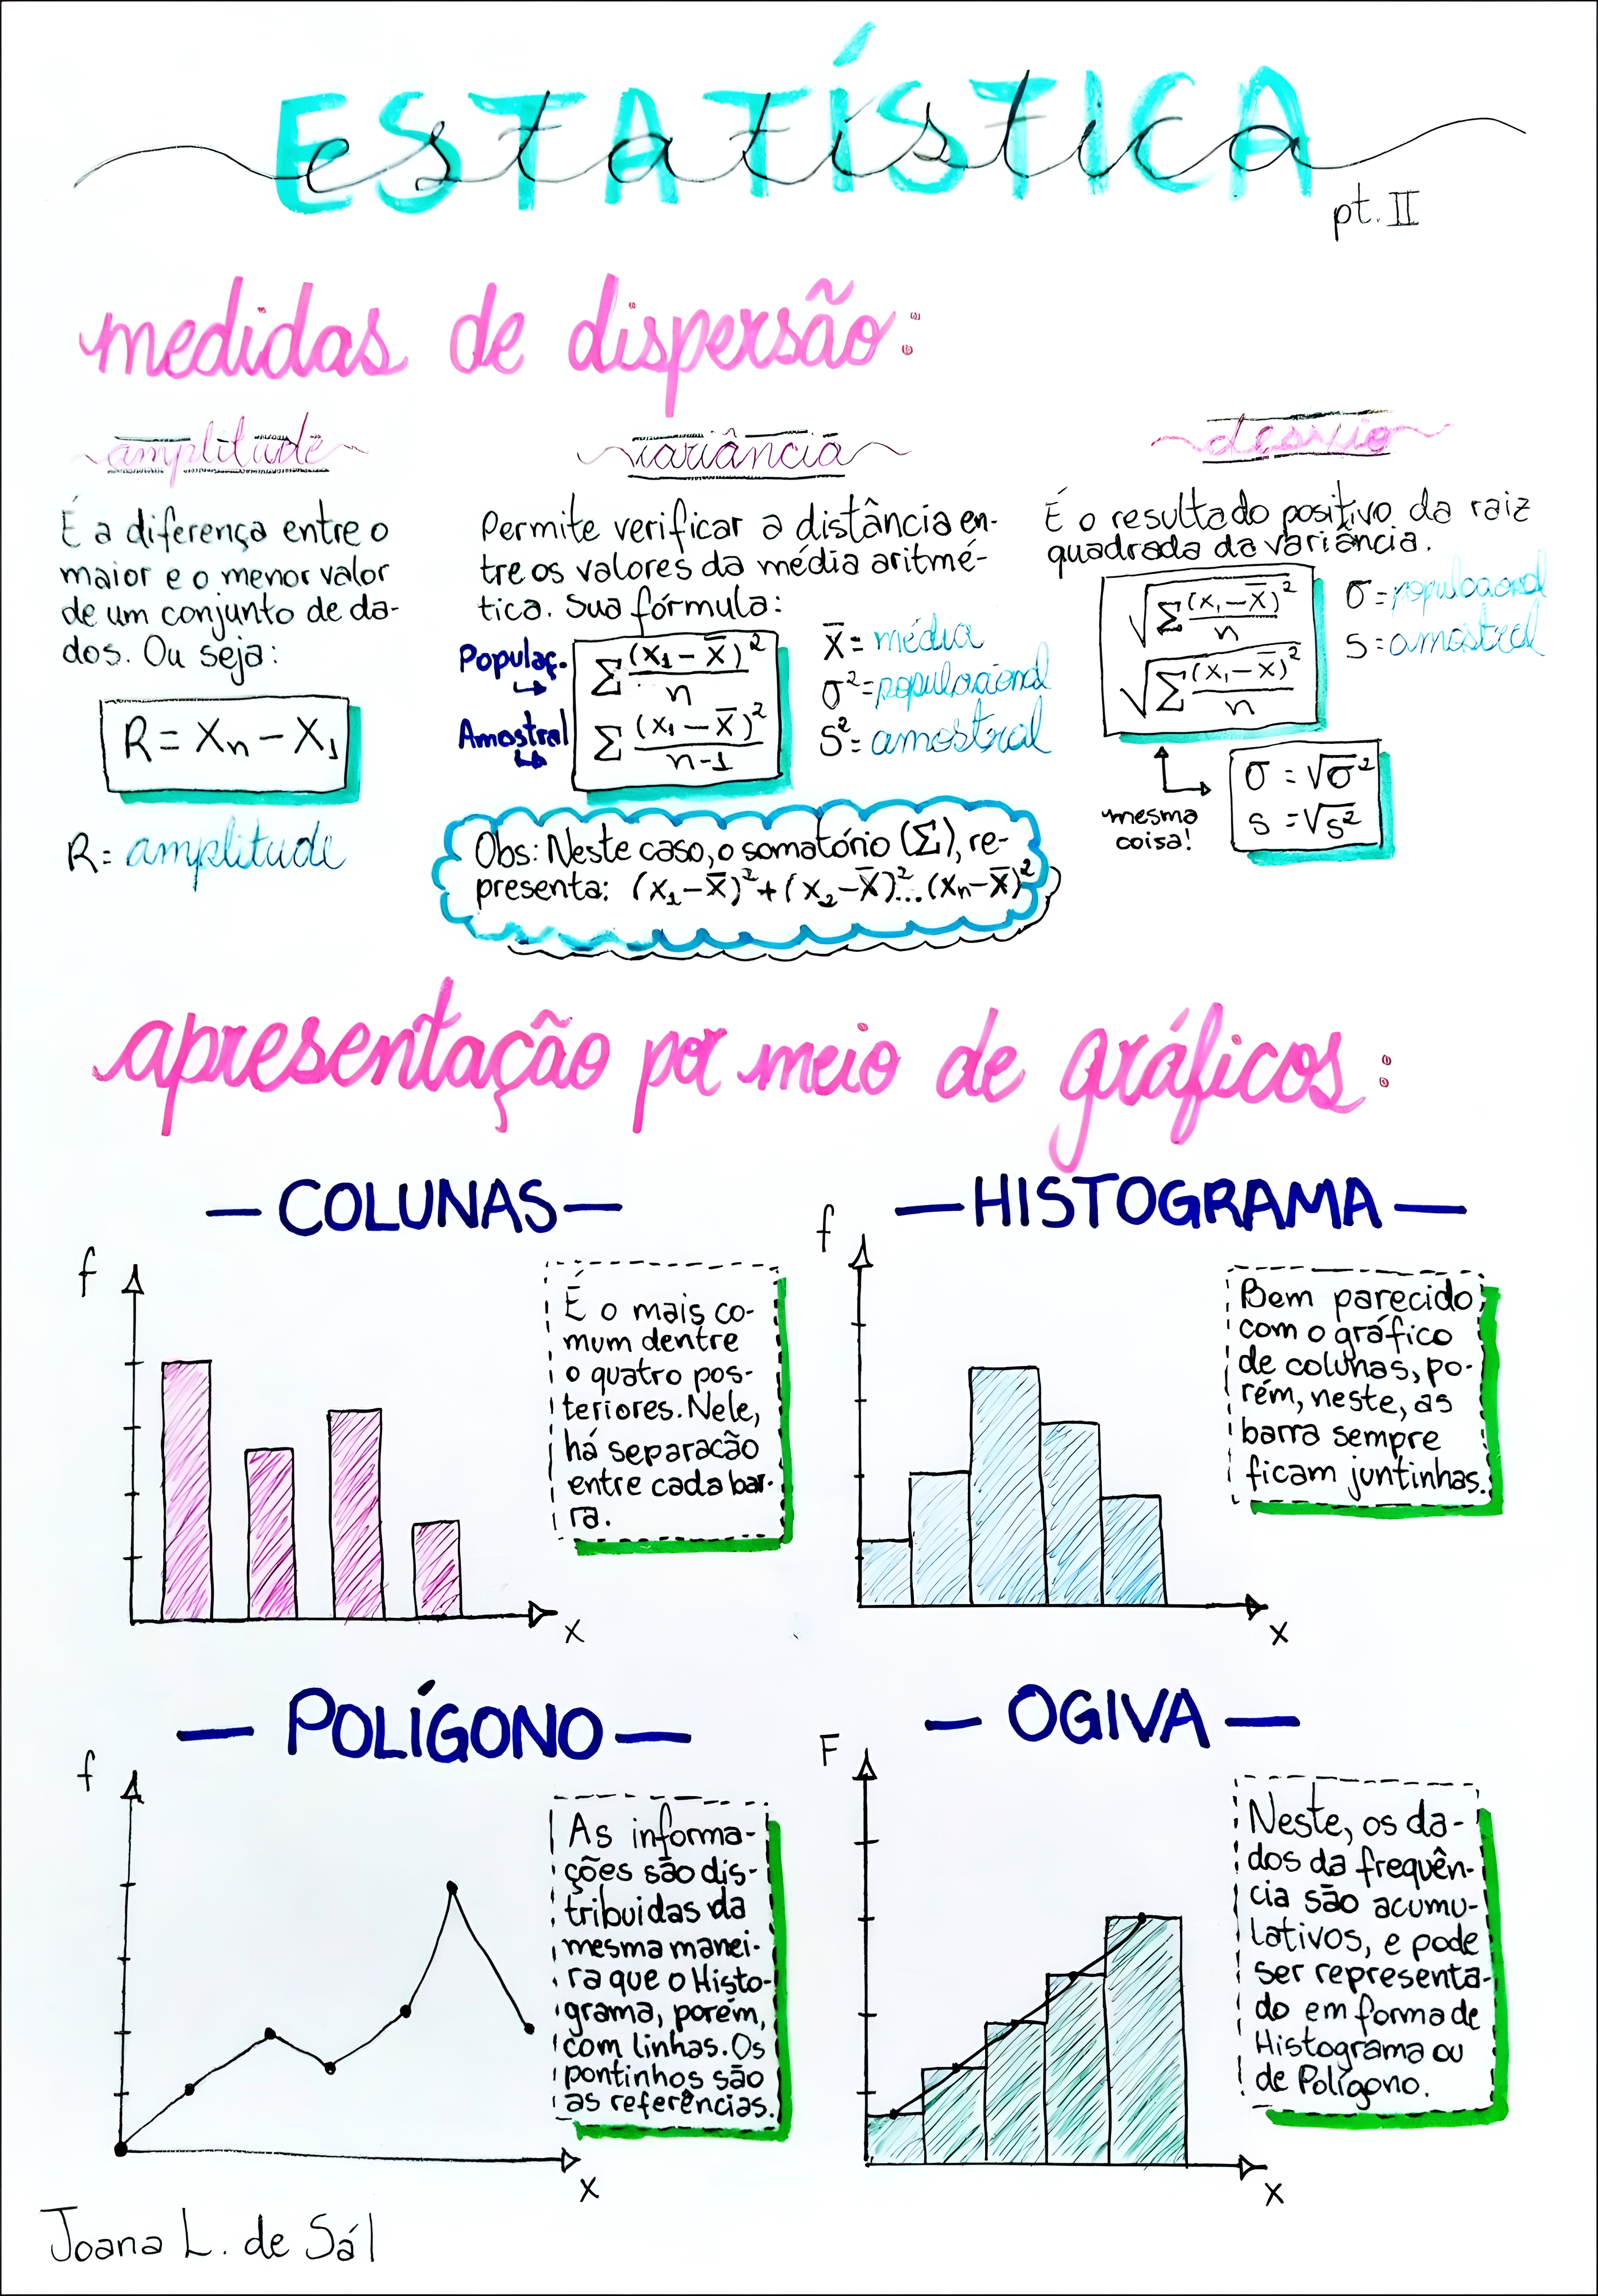 ESTATÍSTICA
estatística
pt. II
medidas de dispersão:
amplitude
É a diferença entre o
maior e o menor valor
de um conjunto de da-
dos. Ou seja:
R = Xn - X1
R= amplitude
variância
Permite verificar a distância en-
tre os valores da média aritmé-
tica. Sua fórmula:
Populaç.
∑ (x1 - x̄)² / n
Amostral
∑ (x1 - x̄)² / n-1
x̄ = média
σ² = populacional
S² = amostral
Obs: Neste caso, o somatório (∑), re-
presenta: (x1-x̄)² + (x2-x̄)²... (xn-x̄)²
desvio
É o resultado positivo da raiz
quadrada da variância.
√∑ (x1-x̄)² / n
√∑ (x1-x̄)² / n
σ = populacional
S = amostral
mesma
coisa!
σ = √σ²
s = √s²
apresentação por meio de gráficos:
— COLUNAS —
f
x
É o mais co-
mum dentre
o quatro pos-
teriores. Nele,
há separacão
entre cada bar-
ra.
— HISTOGRAMA —
f
x
Bem parecido
com o gráfico
de colunas, po-
rém, neste, as
barra sempre
ficam juntinhas.
— POLÍGONO —
f
x
As informa-
ções são dis-
tribuidas da
mesma manei-
ra que o Histo-
grama, porém,
com linhas. Os
pontinhos são
as referências.
— OGIVA —
F
x
Neste, os da-
dos da frequên-
cia são acumu-
lativos, e pode
ser representa-
do em forma de
Histograma ou
de Polígono.
Joana L. de Sál